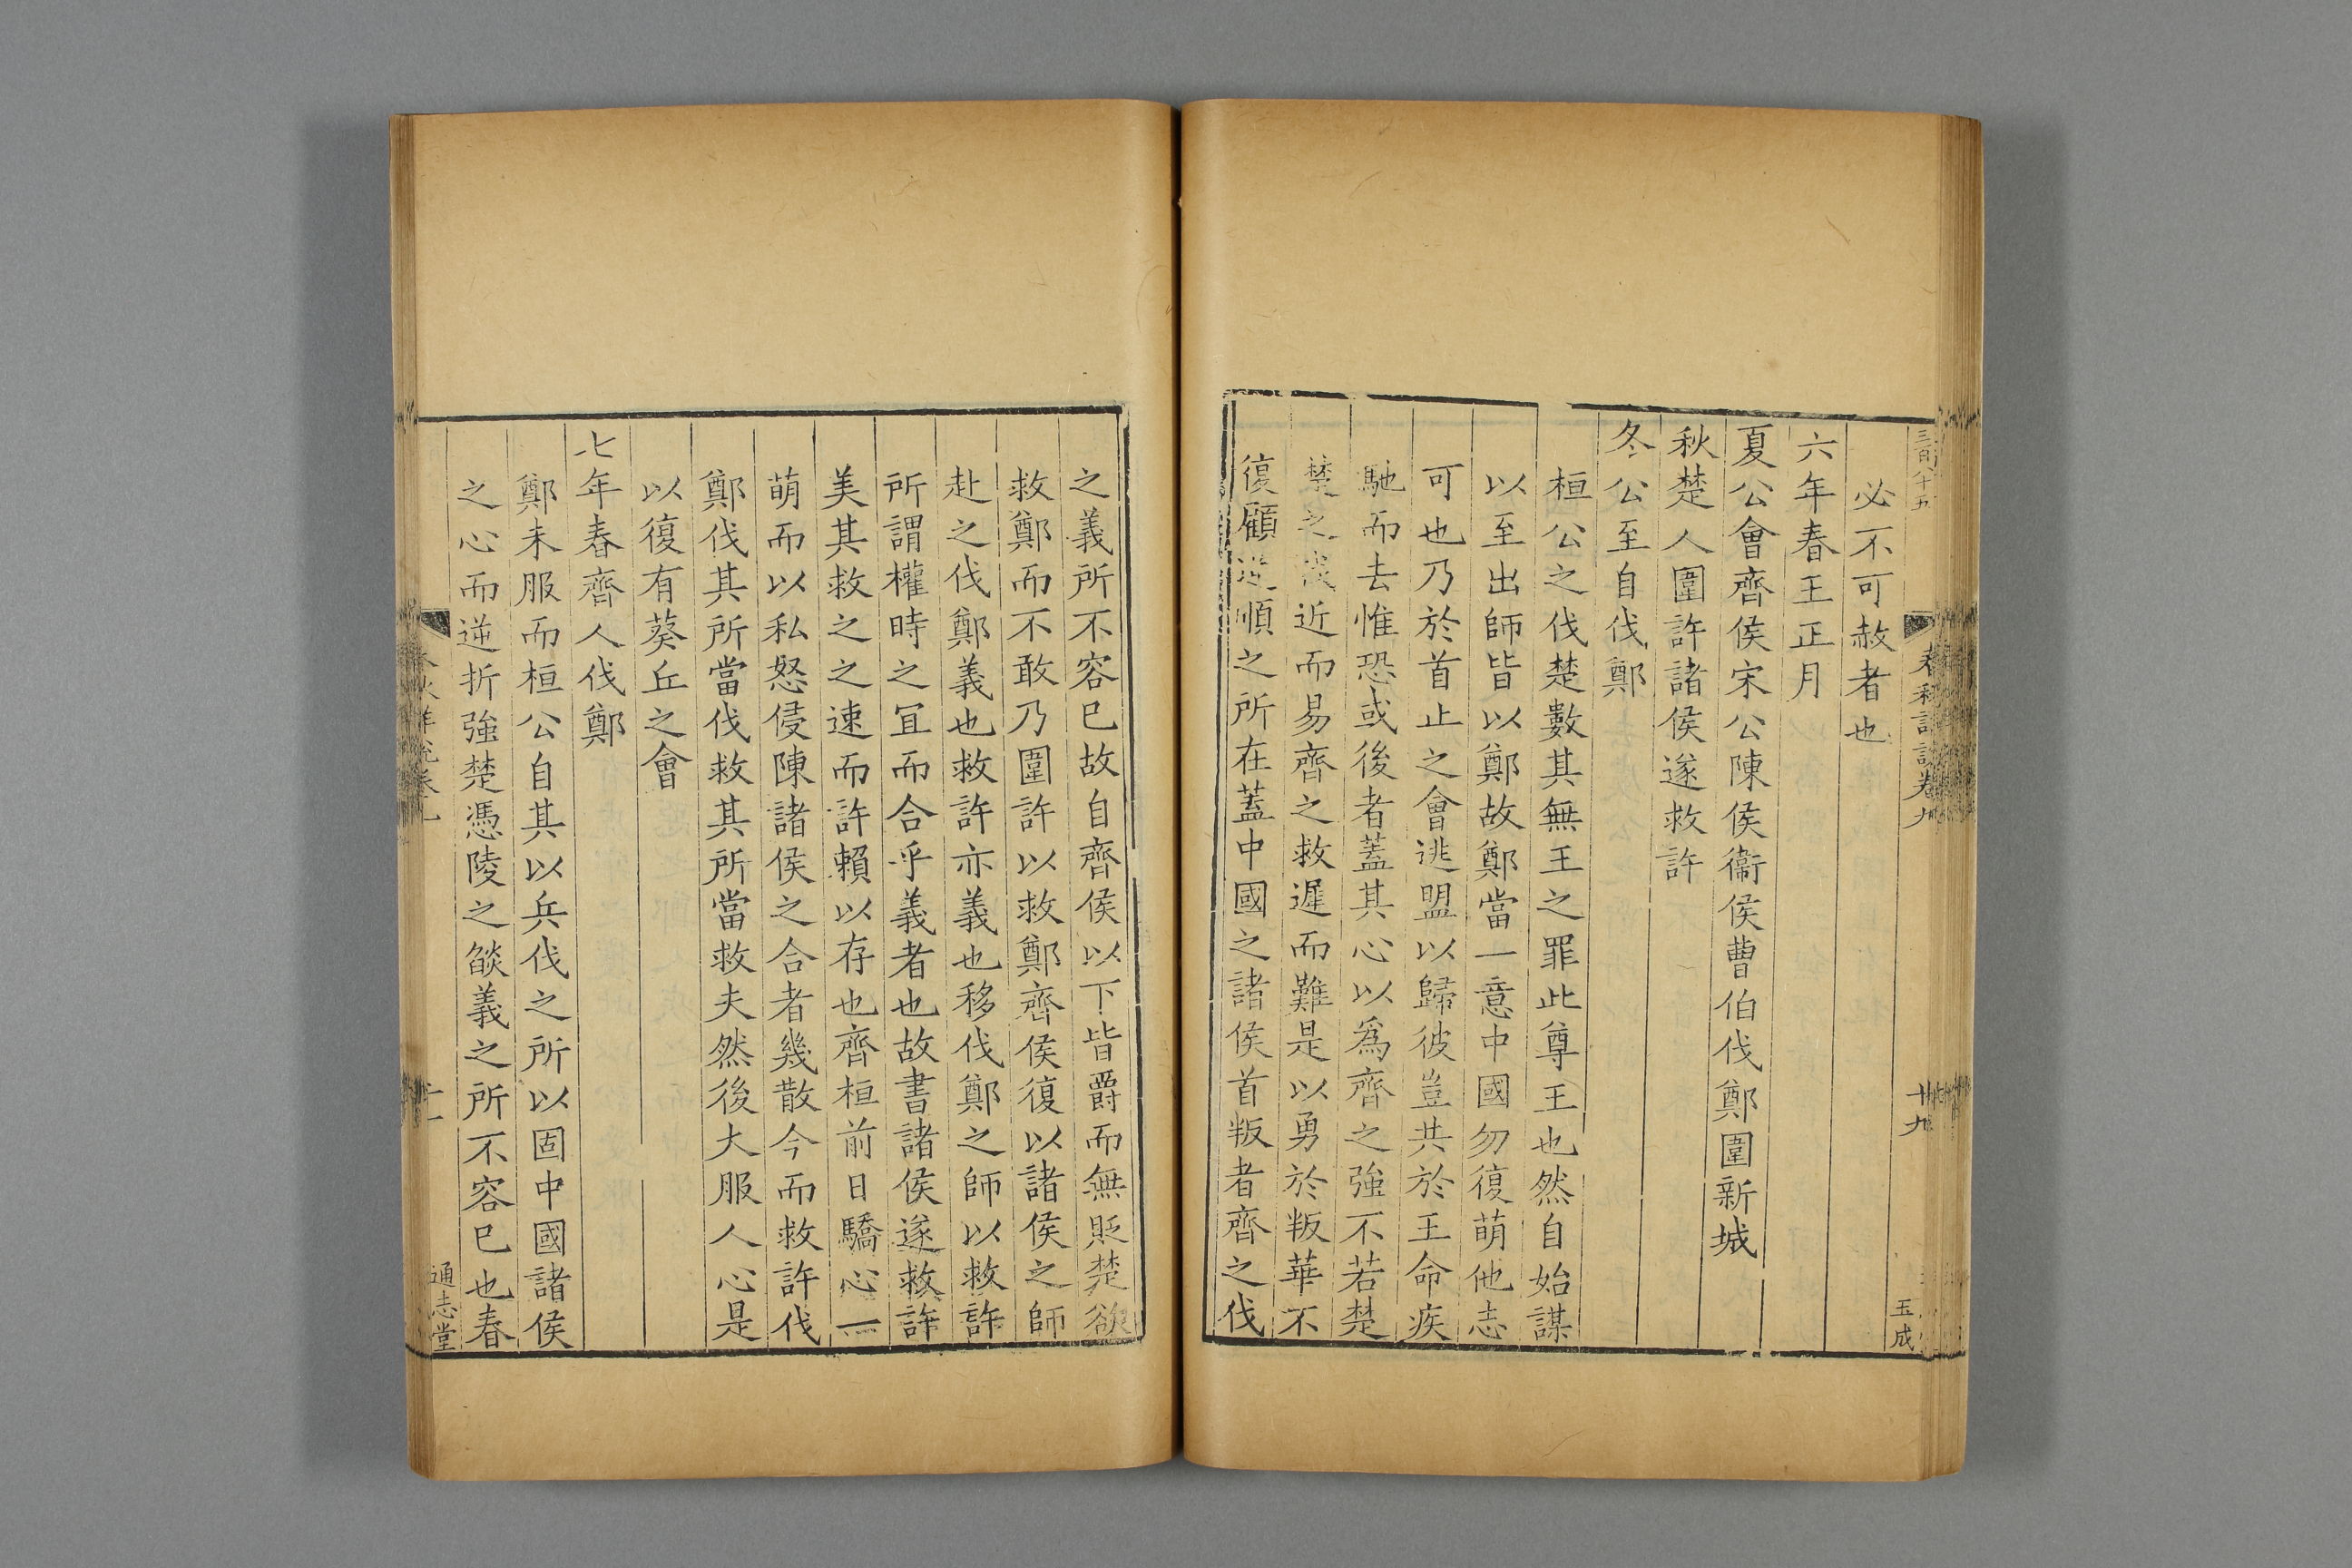 三百八十五
春秋詳說卷九
十九
玉成
必不可赦者也
六年春王正月
夏公會齊侯宋公陳侯衞侯曹伯伐鄭圍新城
秋楚人圍許諸侯遂救許
冬公至自伐鄭
桓公之伐楚數其無王之罪此尊王也然自始謀
以至出師皆以鄭故鄭當一意中國勿復萌他志
可也乃於首止之會逃盟以歸彼豈共於王命疾
馳而去惟恐或後者蓋其心以爲齊之強不若楚
楚之近而易齊之救遲而難是以勇於叛華不
復顧逆順之所在蓋中國之諸侯首叛者齊之伐
之義所不容已故自齊侯以下皆爵而無貶楚欲
救鄭而不敢乃圍許以救鄭齊侯復以諸侯之師
赴之伐鄭義也救許亦義也移伐鄭之師以救許
所謂權時之冝而合乎義者也故書諸侯遂救許
美其救之之速而許賴以存也齊桓前日驕心一
萌而以私怒侵陳諸侯之合者幾散今而救許伐
鄭伐其所當伐救其所當救夫然後大服人心是
以復有葵丘之會
七年春齊人伐鄭
鄭未服而桓公自其以兵伐之所以固中國諸侯
之心而逆折強楚憑陵之燄義之所不容已也春
通志堂